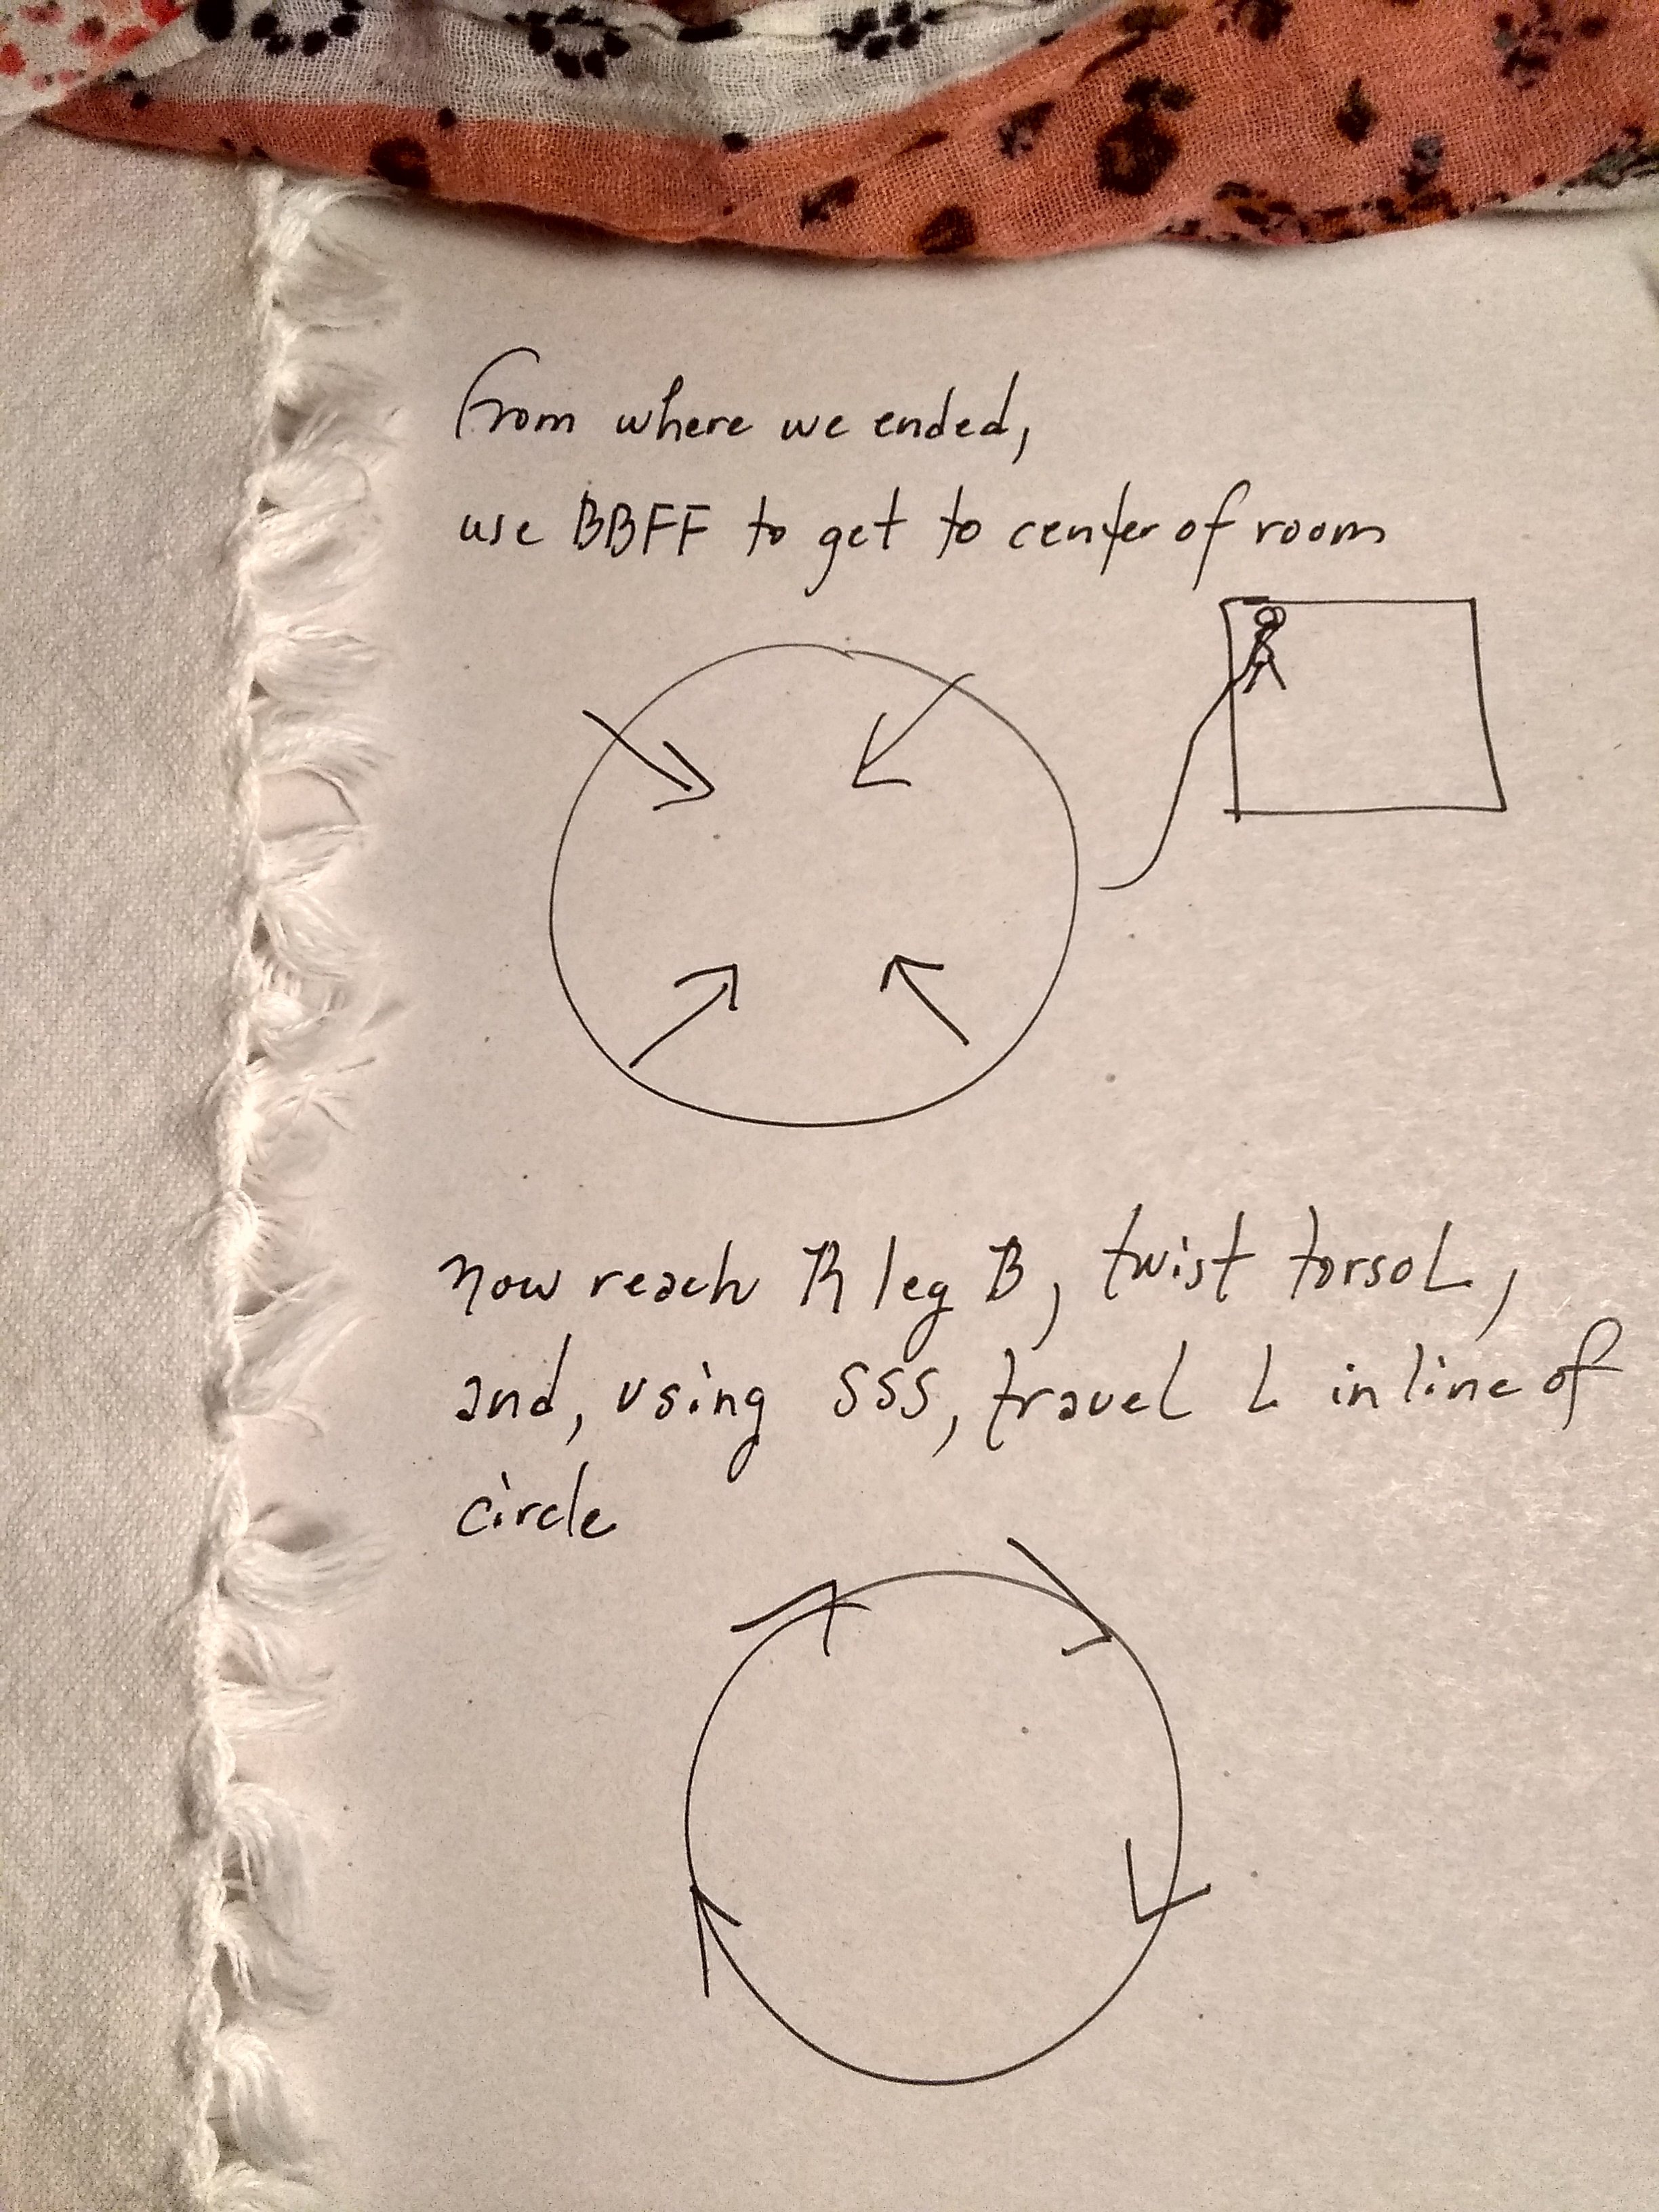 from where we ended,
use BBFF to get to center of room
now reach R leg B, twist torso L,
and, using SSS, travel L in line of
circle